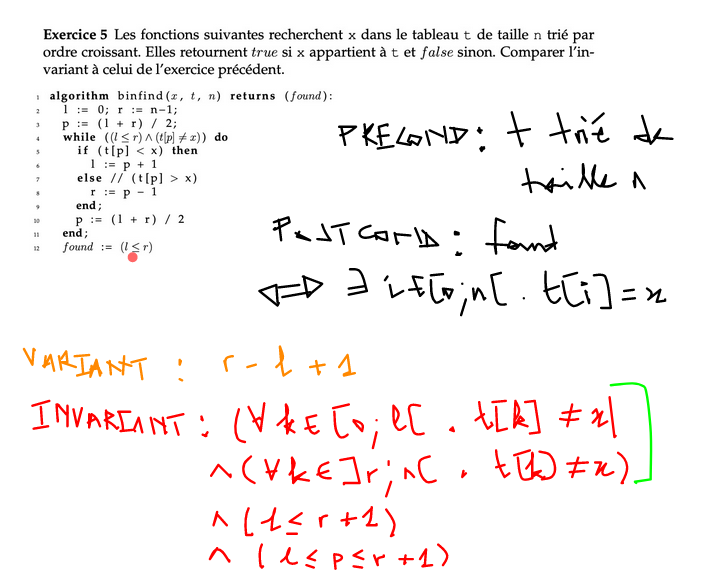 Exercice 5 Les fonctions suivantes recherchent x dans le tableau t de taille n trié par
ordre croissant. Elles retournent true si x appartient à t et false sinon. Comparer l'in-
variant à celui de l'exercice précédent.
1 algorithm binfind(x, t, n) returns (found):
2 l := 0; r := n-1;
3 p := (l + r) / 2;
4 while ((l ≤ r) ∧ (t[p] ≠ x)) do
5 if (t[p] < x) then
6 l := p + 1
7 else // (t[p] > x)
8 r := p - 1
9 end;
10 p := (l + r) / 2
11 end;
12 found := (l ≤ r)
PRECOND : t trié de
taille n
POSTCOND : found
⟺ ∃ i ∈ [0;n[ . t[i] = x
VARIANT : r - l + 1
INVARIANT : (∀ k ∈ [0; l[ . t[k] ≠ x)
∧ (∀ k ∈ ]r; n[ . t[k] ≠ x)
∧ (l ≤ r + 1)
∧ (l ≤ p ≤ r + 1)